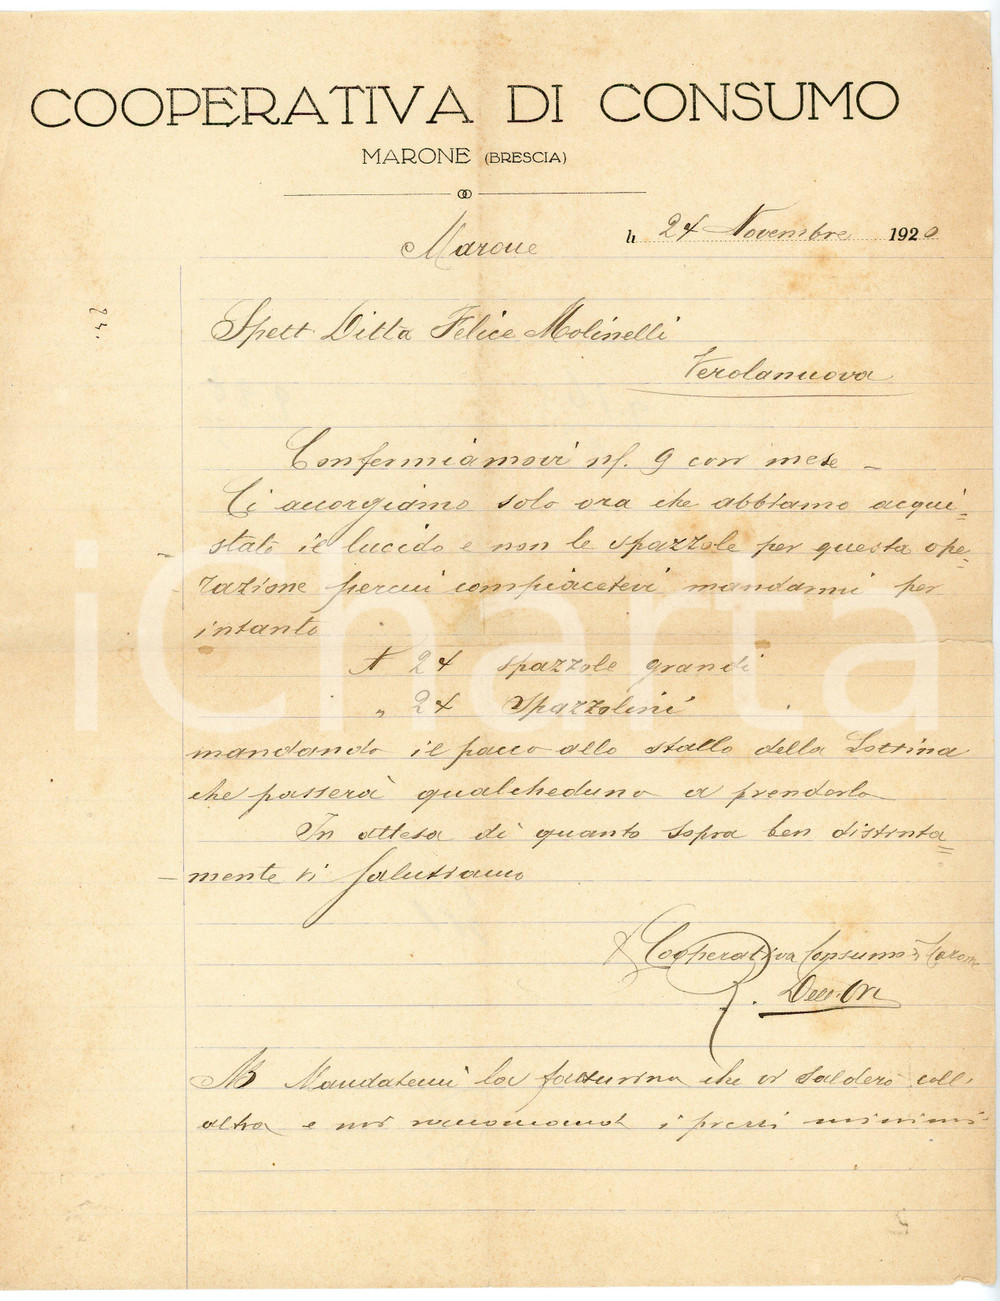 COOPERATIVA DI CONSUMO
MARONE (BRESCIA)
Marone li 24 Novembre 1920
Spett Ditta Felice Molinelli
Verolanuova
Confermiamovi ns/. 9 corr mese –
Ci accorgiamo solo ora che abbiamo acqui=
stato il lucido e non le spazzole per questa ope=
razione percui compiacetevi mandarmi per
intanto
N 24 spazzole grandi
" 24 Spazzolini
mandando il pacco allo stallo della
che passerà qualcheduno a prenderlo
In attesa di quanto sopra ben distinta=
mente vi salutiamo
Cooperativa Consumo Marone
NB Mandatemi la fatturina che vi salderò coll'
altra e mi raccomando i prezzi minimi
iCharta